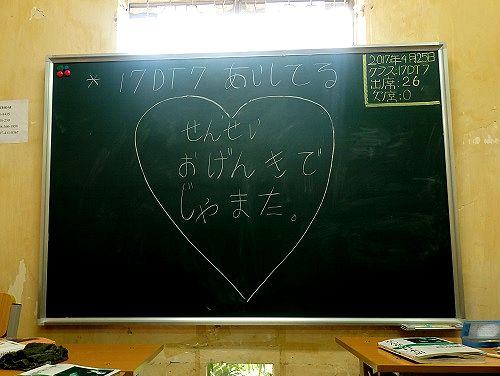 * 17DT7 あいしてる
せんせい
おげんきで
じゃまた。
2017年4月25日
クラス:17DT7
出席:26
欠席:0